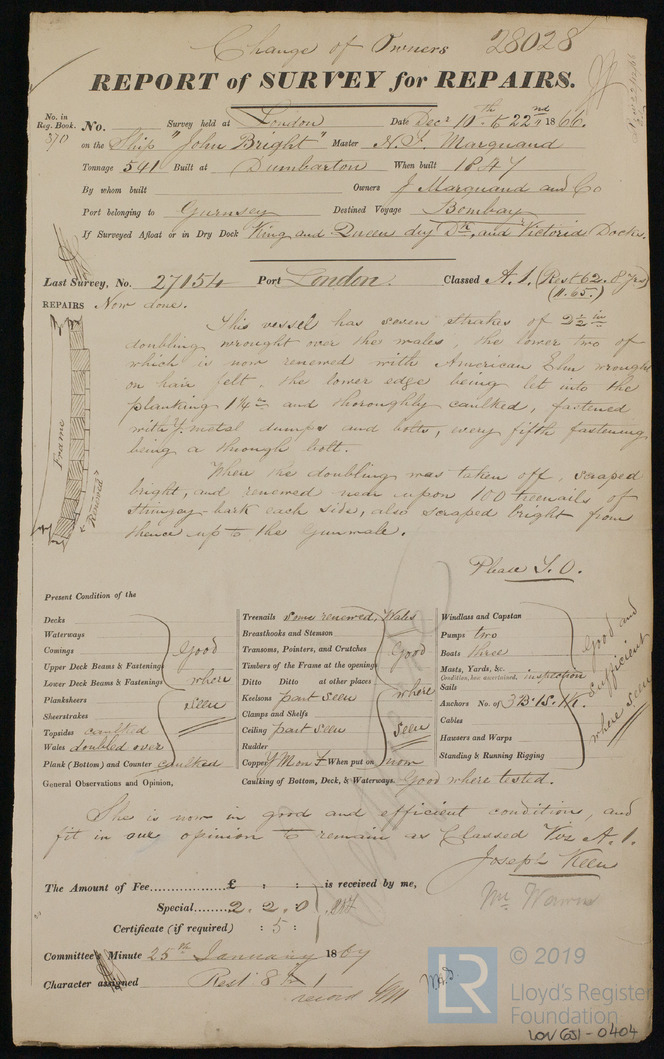 Change of Owners 28028
REPORT of SURVEY for REPAIRS.
No. in Reg. Book. 390
No. Survey held at London Date Decr 10th to 22nd 1866.
on the Ship "John Bright" Master N. F. Marquand
Tonnage 541 Built at Dumbarton When built 1847
By whom built Owners J Marquand and Co
Port belonging to Guernsey Destined Voyage Bombay
If Surveyed Afloat or in Dry Dock King and Queens dry Dk, and Victoria Docks.
Last Survey, No. 27154 Port London. Classed A.1. (Rest 62. 8 yrs)
(11.65.)
REPAIRS Now done.
This vessel has seven strakes of 2 1/2 in
doubling wrought over the wales, the lower two of
which is now renewed with American Elm wrought
on hair felt, the lower edge being let into the
planking 1 1/4 in and thoroughly caulked, fastened
with Y. metal dumps and bolts, every fifth fastening
being a through bolt.
Frame
Renewed
When the doubling was taken off, scraped
bright, and renewed near upon 100 treenails of
Stringy-bark each side, also scraped bright from
thence up to the Gunwale.
Please T.O.
Present Condition of the
Decks
Waterways
Comings
Upper Deck Beams & Fastenings
Lower Deck Beams & Fastenings
Planksheers
Sheerstrakes
Topsides caulked
Wales doubled over
Plank (Bottom) and Counter caulked
Good where seen
Treenails some renewed, Wales
Breasthooks and Stemson
Transoms, Pointers, and Crutches
Timbers of the Frame at the openings
Ditto Ditto at other places
Keelsons part seen
Clamps and Shelfs
Ceiling part seen
Rudder
Copper Y Mon F When put on now
Good where seen
Windlass and Capstan
Pumps two
Boats three
Masts, Yards, &c.
Condition, how ascertained, inspection
Sails
Anchors No. of 3 B. 1 S. 1 K.
Cables
Hausers and Warps
Standing & Running Rigging
Good and sufficient where seen
General Observations and Opinion,
Caulking of Bottom, Deck, & Waterways. Good where tested.
She is now in good and efficient condition, and
fit in our opinion to remain as Classed Viz A.1.
Joseph Keen
The Amount of Fee £ : : is received by me,
Special 2.2.0
Certificate (if required) : 5 :
Committee's Minute 25th January 1867
Character assigned Rest 8 A 1
record
© 2019
LR
Lloyd's Register
Foundation
LON 651-0404